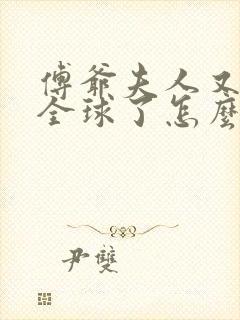 傅爺夫人又
全球了怎麼
尹雙